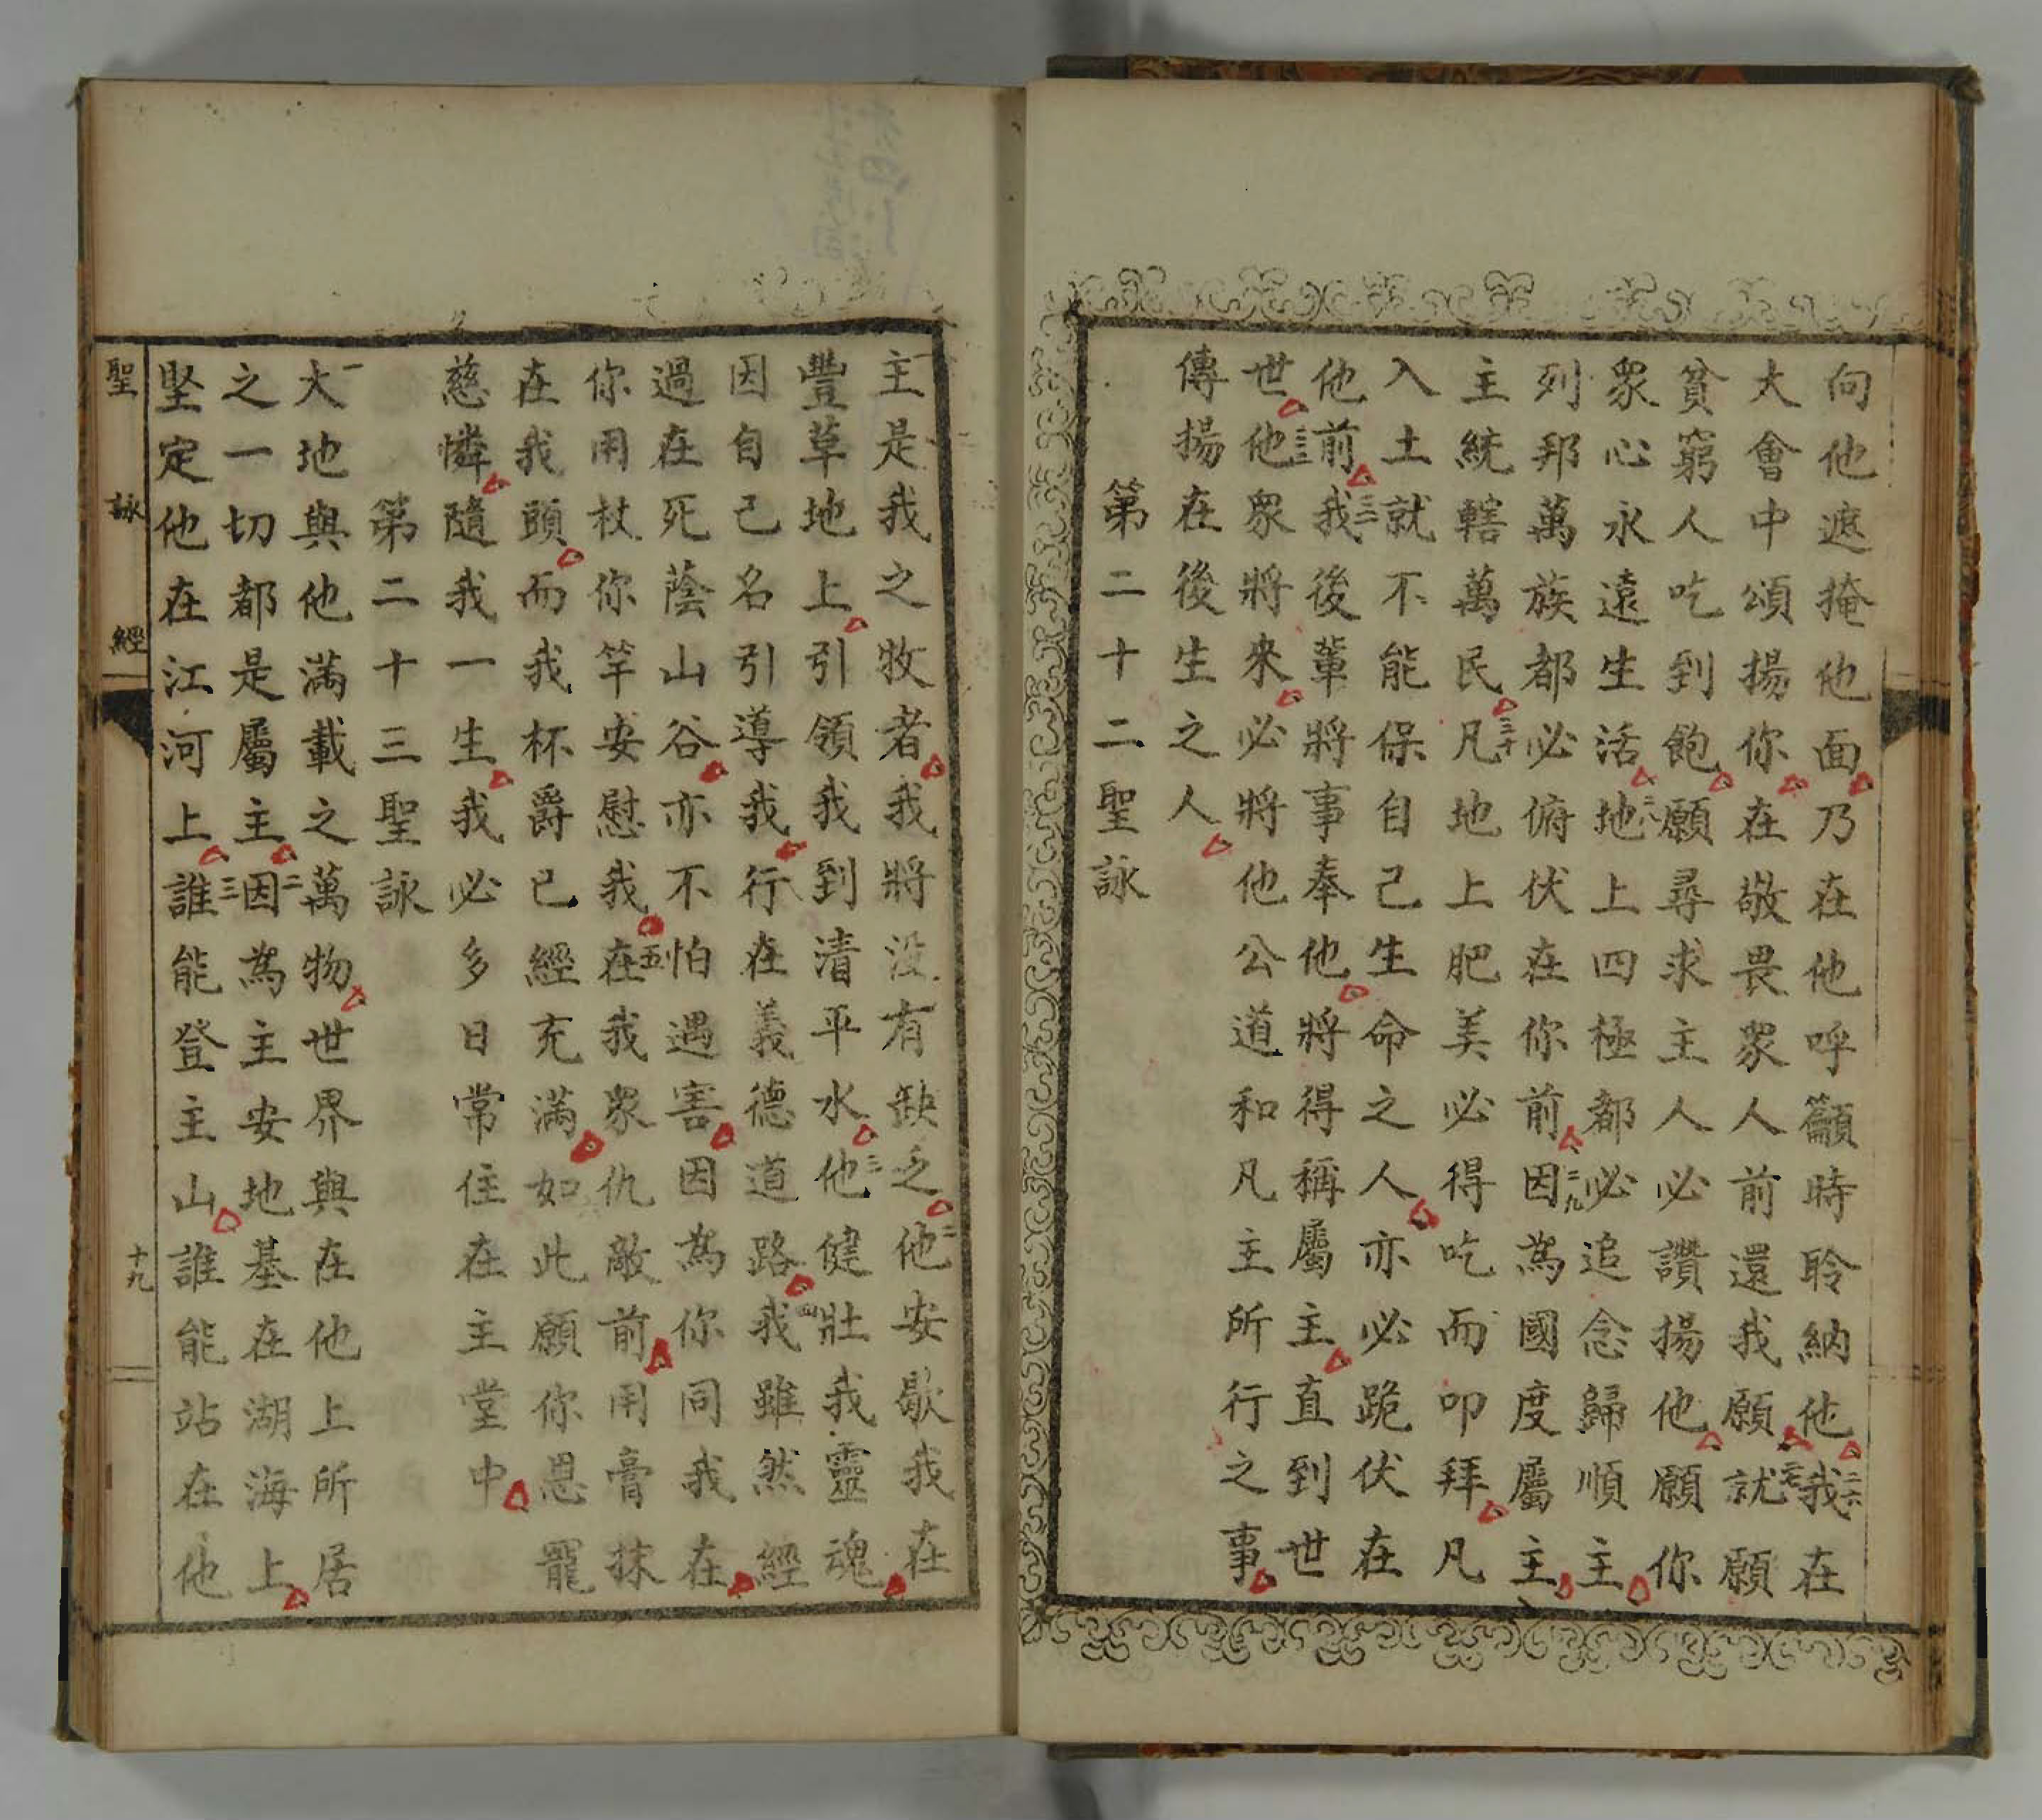 向他遮掩他面乃在他呼籲時聆納他二六我在
大會中頌揚你在敬畏衆人前還我願二七就願
貧窮人吃到飽願尋求主人必讚揚他願你
衆心永遠生活二八地上四極都必追念歸順主
列邦萬族都必俯伏在你前二九因為國度屬主
主統轄萬民三十凡地上肥美必得吃而叩拜凡
入土就不能保自己生命之人亦必跪伏在
他前三二我後輩將事奉他將得稱屬主直到世
世三三他衆將來必將他公道和凡主所行之事
傳揚在後生之人
第二十二聖詠
一主是我之牧者我將没有缺乏二他安歇我在
豐草地上引領我到清平水三他健壯我靈魂
因自己名引導我行在義德道路四我雖然經
過在死蔭山谷亦不怕遇害因為你同我在
你用杖你竿安慰我五在我衆仇敵前用膏抹
在我頭而我杯爵已經充滿如此願你恩寵
慈憐隨我一生我必多日常住在主堂中
第二十三聖詠
一大地與他滿載之萬物世界與在他上所居
之一切都是屬主二因為主安地基在湖海上
堅定他在江河上三誰能登主山誰能站在他
聖詠經
十九